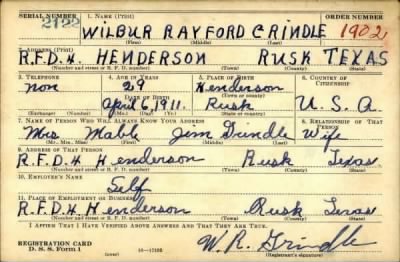 SERIAL NUMBER 1. NAME (Print) ORDER NUMBER
2122 WILBUR RAYFORD GRINDLE 1902
(First) (Middle) (Last)
2. ADDRESS (Print)
R.F.D.4. HENDERSON RUSK TEXAS
(Number and street or R. F. D. number) (Town) (County) (State)
3. TELEPHONE 4. AGE IN YEARS 5. PLACE OF BIRTH 6. COUNTRY OF CITIZENSHIP
non 29 Henderson
April 6, 1911. Rusk U. S. A.
7. NAME OF PERSON WHO WILL ALWAYS KNOW YOUR ADDRESS 8. RELATIONSHIP OF THAT PERSON
Mrs Mable Jim Grindle Wife
(Mr., Mrs., Miss) (First) (Middle) (Last)
9. ADDRESS OF THAT PERSON
R.F.D.4 Henderson Rusk Texas
(Number and street or R. F. D. number) (Town) (County) (State)
10. EMPLOYER'S NAME
Self
11. PLACE OF EMPLOYMENT OR BUSINESS
R.F.D.4 Henderson Rusk Texas
(Number and street or R. F. D. number) (Town) (County) (State)
I AFFIRM THAT I HAVE VERIFIED ABOVE ANSWERS AND THAT THEY ARE TRUE.
REGISTRATION CARD
D. S. S. Form 1 W. R. Grindle
(Registrant's signature)